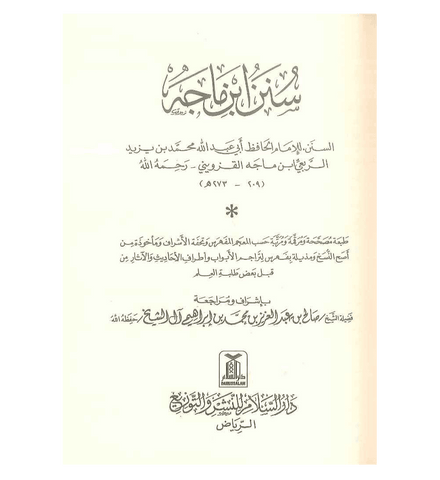 سُنَنُ ابْنِ مَاجَهْ
السنن، للإمام الحافظ أبي عبد الله محمّد بن يزيد
الرّبعيّ ابن ماجه القزويني - رَحِمَهُ اللهُ
(٢٠٩ - ٢٧٣هـ)
*
طبعة مصحّحة ومرقّمة ومرتّبة حسب المعجم المفهرس وتحفة الأشراف ومأخوذة من
أصح النّسخ ومذيلة بفهرس لتراجم الأبواب وأطراف الأحاديث والآثار من
قبل بعض طلبة العلم
بإشراف ومراجعة
فضيلة الشيخ/ صالح بن عبد العزيز بن محمّد بن إبراهيم آل الشيخ حفظه الله
دار السلام
DARUSSALAM
دار السلام للنشر والتوزيع
الرياض